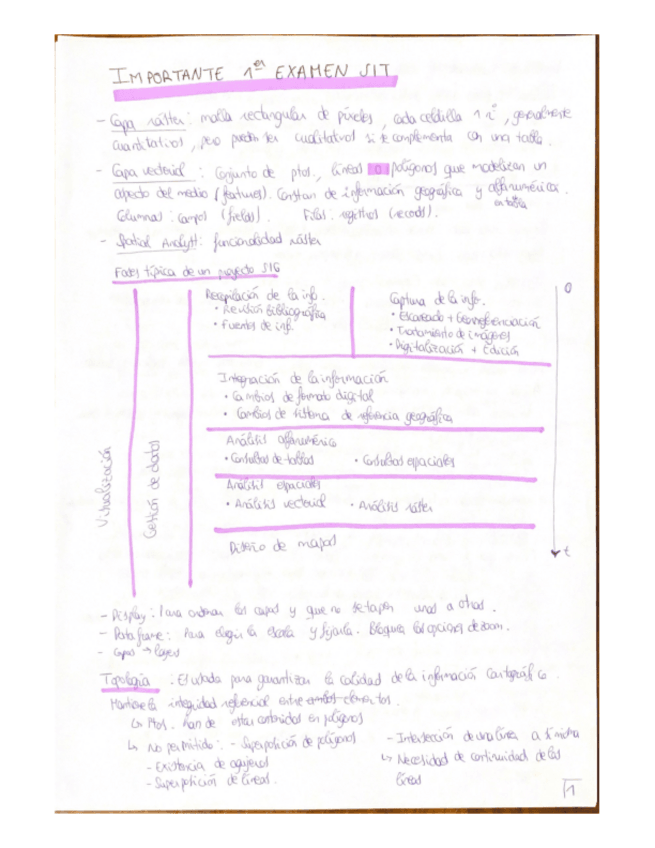 IMPORTANTE 1er EXAMEN SIT
- Capa ráster: malla rectangular de píxeles, cada celdilla 1 nº, generalmente
cuantitativos, pero pueden ser cualitativos si se complementa con una tabla.
- Capa vectorial: Conjunto de ptos., líneas o polígonos que modelizan un
aspecto del medio (features). Constan de información geográfica y alfanumérica.
en tabla
Columnas: campos (fields). Filas: registros (records).
- Spatial Analyst: funcionalidad ráster
Fases típica de un proyecto SIG
Recopilación de la info.
• Revisión Bibliográfica
• Fuentes de inf.
Captura de la info.
• Escaneado + Georreferenciación
• Tratamiento de imágenes
• Digitalización + Edición
0
Integración de la información
• Cambios de formato digital
• Cambios de sistema de referencia geográfica
Análisis alfanumérico
• Consultas de tablas • Consultas espaciales
Análisis espaciales
• Análisis vectorial • Análisis ráster
Diseño de mapas
t
Visualización
Gestión de datos
- Display: Para ordenar las capas y que no se tapen unas a otras.
- Data frame: Para elegir la escala y fijarla. Bloquea las opciones de zoom.
- Capas → layers
Topología: Estudiada para garantizar la calidad de la información Cartográfica.
Mantiene la integridad referencial entre ambos elementos.
↳ Ptos. han de estar contenidos en polígonos
↳ No permitido: - Superposición de polígonos
- Existencia de agujeros
- Superposición de líneas.
- Intersección de una línea a sí misma
↳ Necesidad de continuidad de las
líneas
1